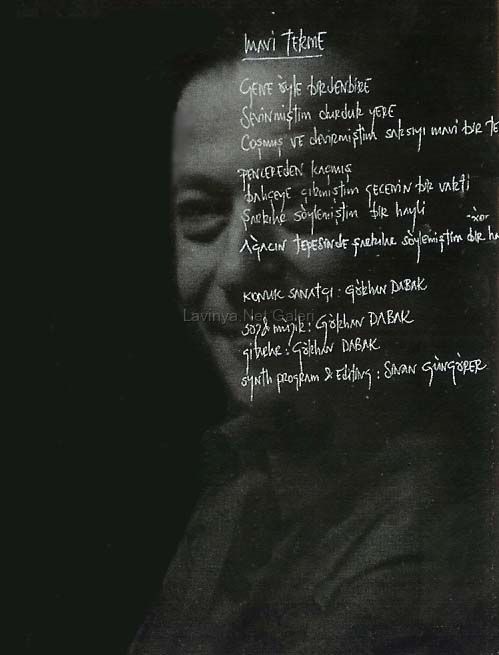 MAVİ TEKME
GENE ÖYLE BİRDENBİRE
SEVİNMİŞTİM DURDUK YERE
COŞMUŞ VE DEVİRMİŞTİM SAKSIYI MAVİ BİR TE
PENCEREDEN KAÇMIŞ
BAHÇEYE ÇIKMIŞTIM GECENİN BİR VAKTİ
ŞARKILAR SÖYLEMİŞTİM BİR HAYLİ
AĞACIN TEPESİNDE ŞARKILAR SÖYLEMİŞTİM BİR HA
KONUK SANATÇI : GÖKHAN DABAK
SÖZ & MÜZİK : GÖKHAN DABAK
GİTARLAR : GÖKHAN DABAK
SYNTH PROGRAM & EDITING : SİNAN GÜNGÖRER
Lavinya.Net Galeri